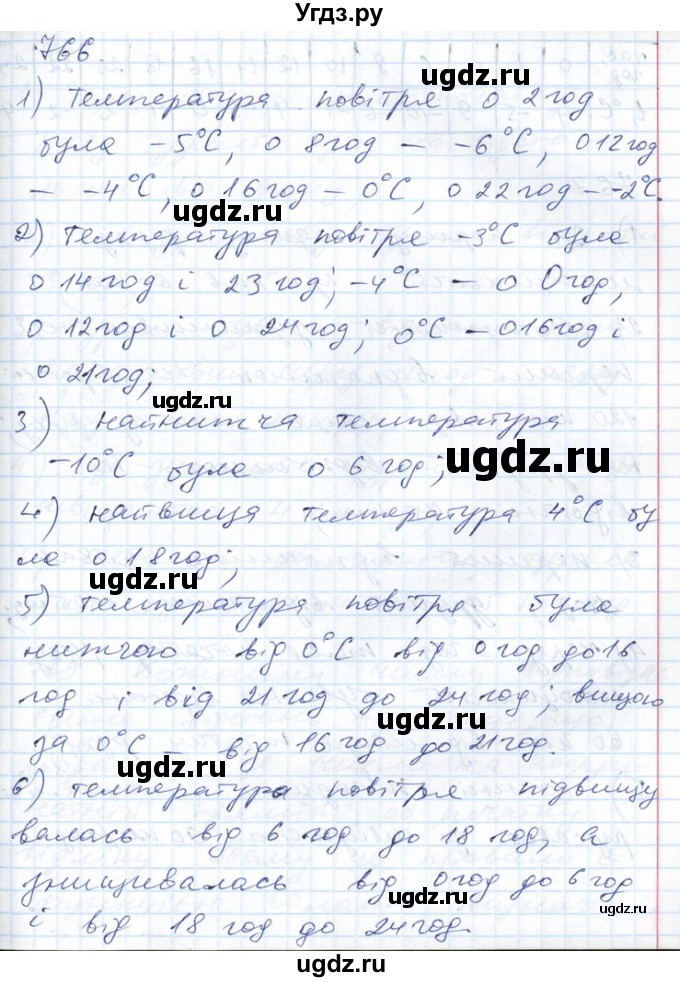 Угдз.ру
766.
1) Температура повітря о 2 год
була -5°С, о 8 год – -6°С, о 12 год
– -4°С, о 16 год – 0°С, о 22 год – -2°С.
2) температура повітря -3°С була
о 14 год і 23 год; -4°С – о 0 год,
о 12 год і о 24 год; 0°С – о 16 год і
о 21 год;
3) найнижча температура
-10°С була о 6 год;
4) найвища температура 4°С бу
ла о 18 год;
5) температура повітря була
нижчою від 0°С від 0 год до 16
год і від 21 год до 24 год; вищою
за 0°С – від 16 год до 21 год.
6) температура повітря підвищу
валась від 6 год до 18 год, а
знищивалась від 0 год до 6 год
і від 18 год до 24 год.
ugdz.ru
ugdz.ru
ugdz.ru
ugdz.ru
ugdz.ru
ugdz.ru
ugdz.ru
ugdz.ru
ugdz.ru
ugdz.ru
ugdz.ru